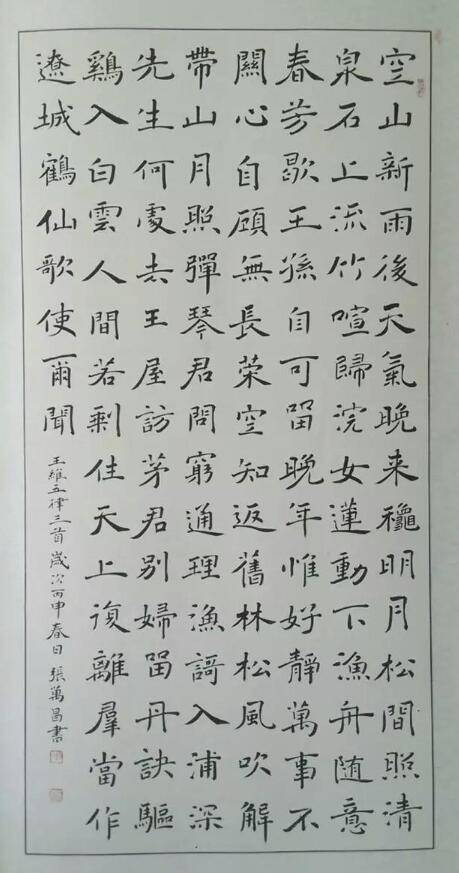 空山新雨後天氣晚来龝明月松間照清
泉石上流竹喧歸浣女蓮動下漁舟随意
春芳歇王孫自可留晚年惟好靜萬事不
關心自顧無長策空知返舊林松風吹解
帶山月照彈琴君問窮通理漁謌入浦深
先生何處去王屋訪茅君别婦留丹訣驅
鷄入白雲人間若剩住天上復離羣當作
遼城鶴仙歌使爾聞
王維五律三首歲次丙申春日張萬昌書